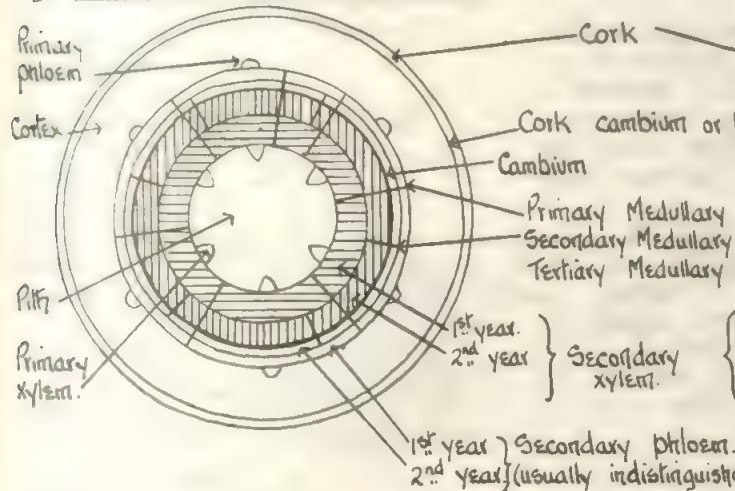 Primary
phloem
Cortex
Pith
Primary
xylem.
Cork
Cork cambium or
Cambium
Primary Medullary
Secondary Medullary
Tertiary Medullary
1st year.
2nd year
Secondary
xylem.
1st year
2nd year
Secondary phloem.
(usually